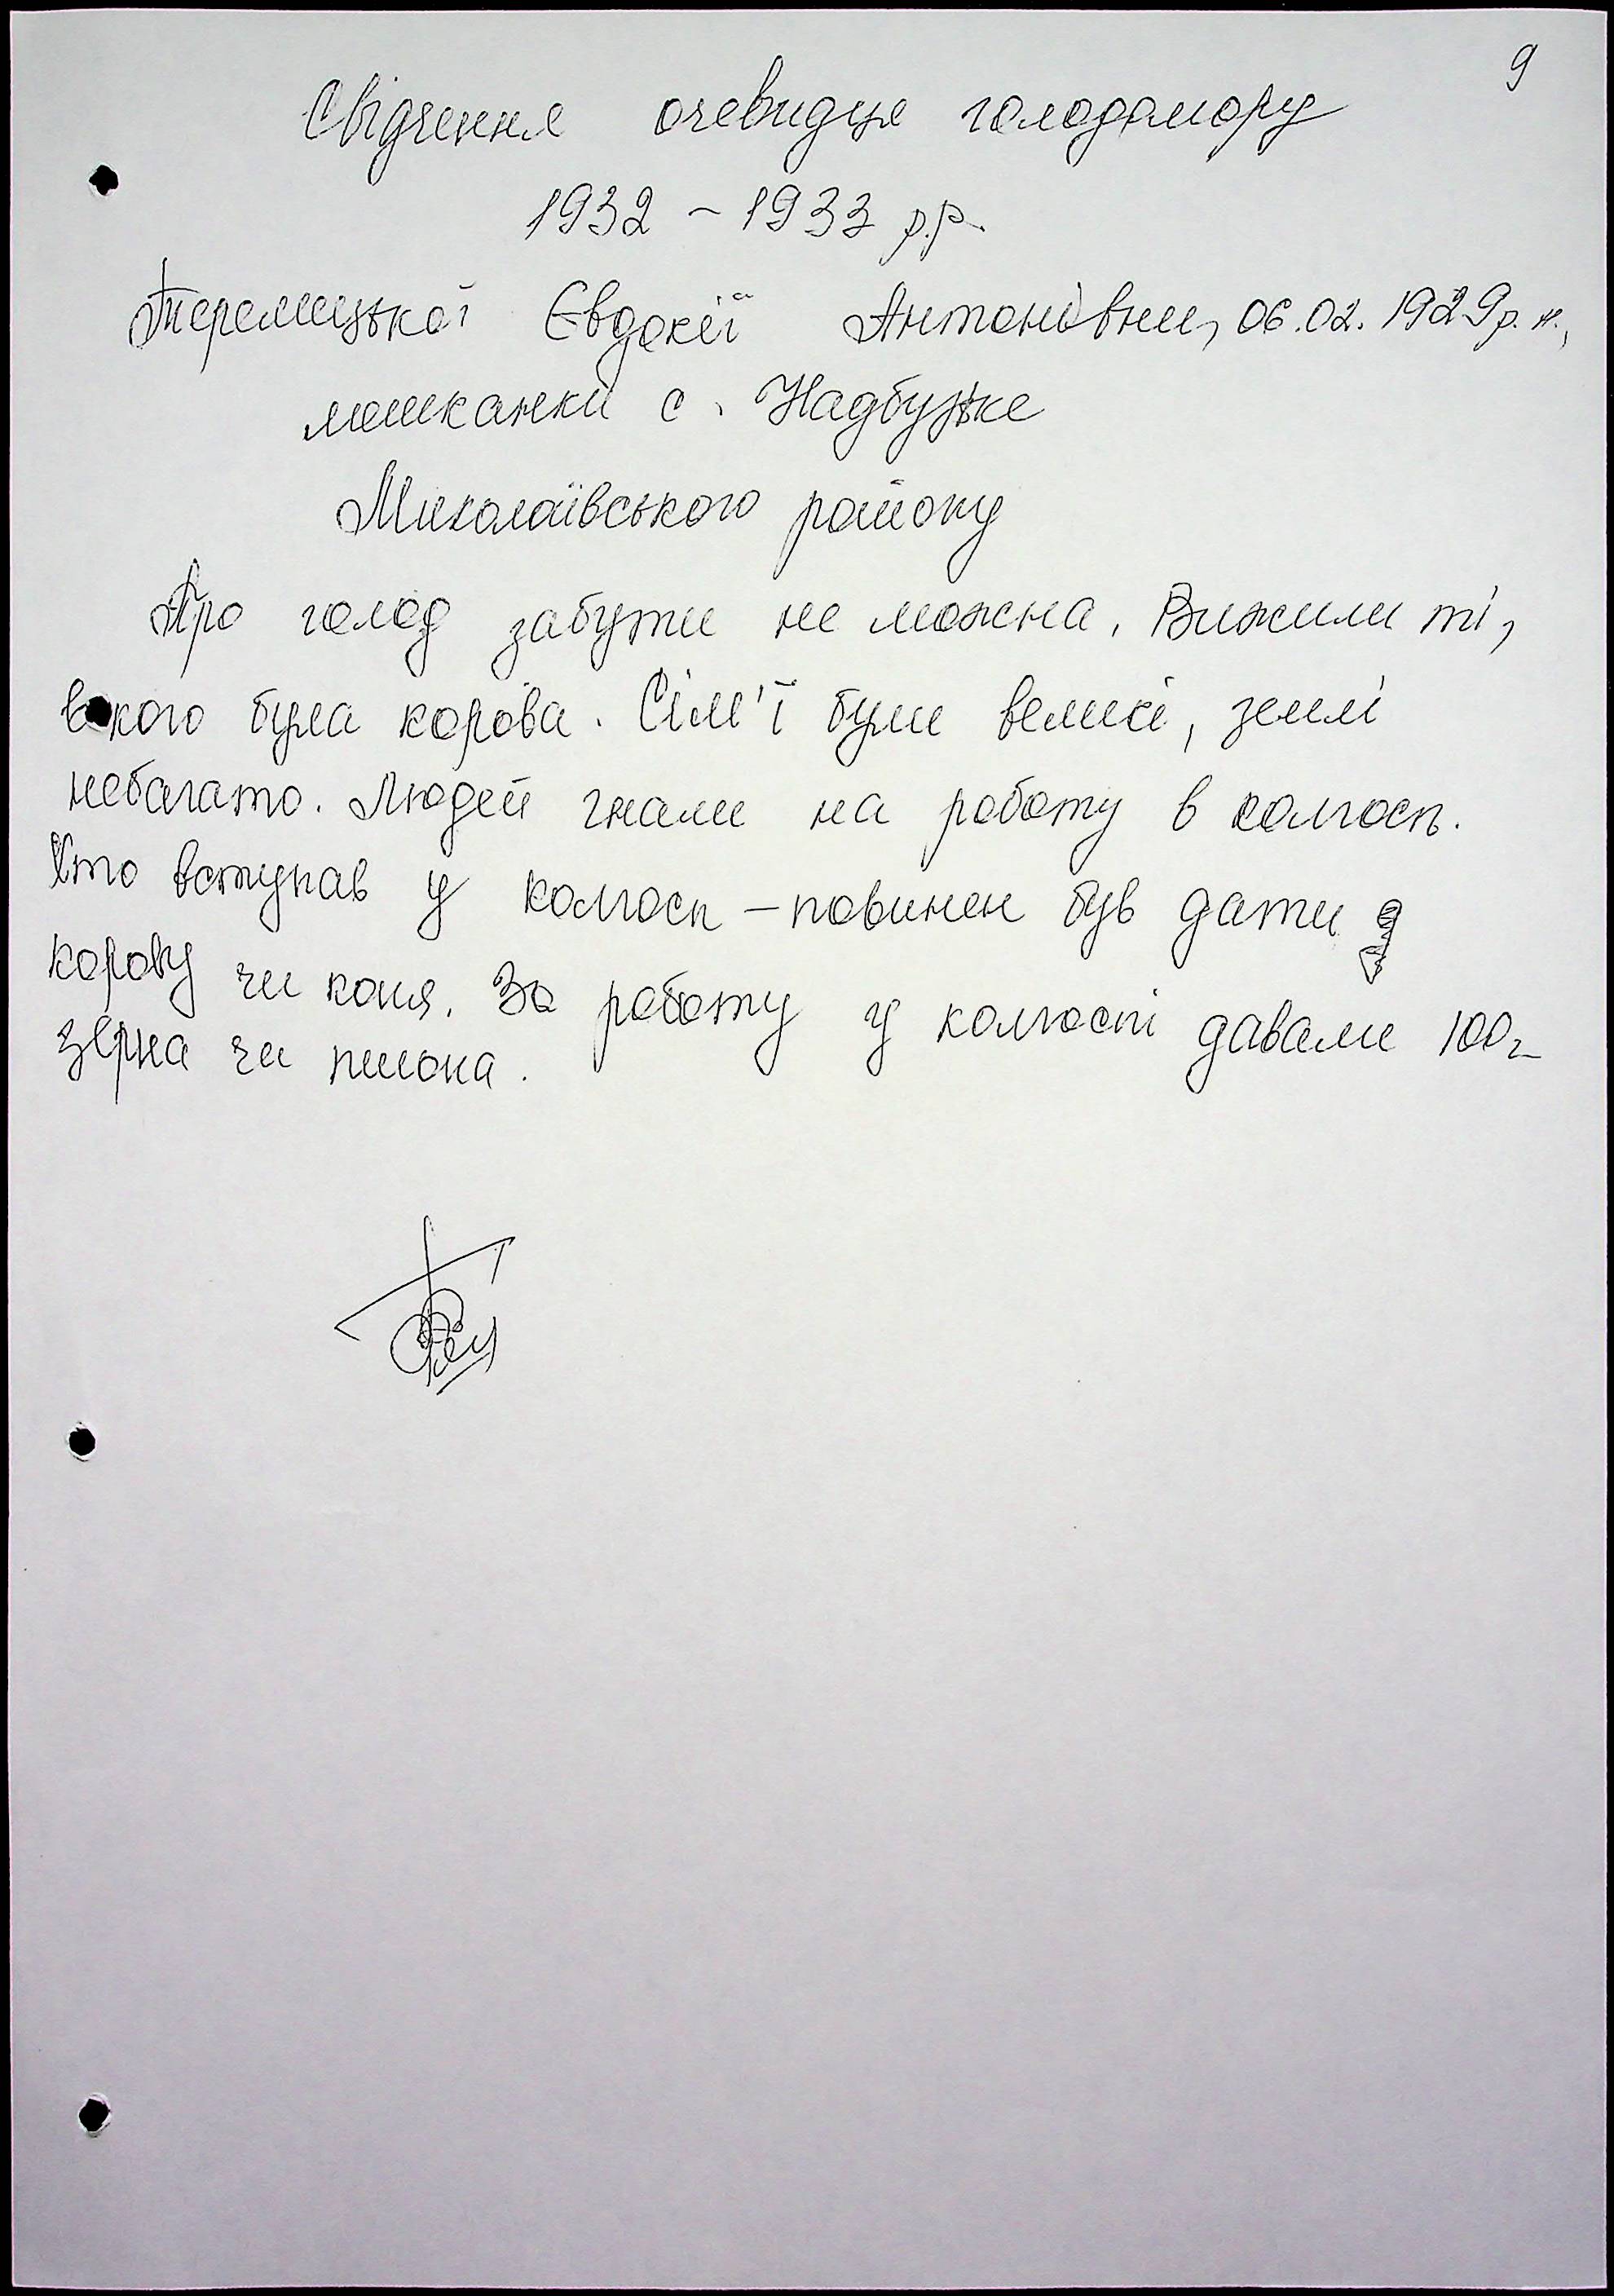 9
Свідчення очевидця голодомору
1932 – 1933 р.р.
Теремецької Євдокії Антонівни, 06.02.1929 р.н.,
мешканки с. Надбузьке
Миколаївського району
Про голод забути не можна. Вижили ті,
в кого була корова. Сім'ї були великі, землі
небагато. Людей гнали на роботу в колгосп.
Хто вступав у колгосп – повинен був дати
корову чи коня. За роботу у колгоспі давали 100 г
зерна чи пшона.